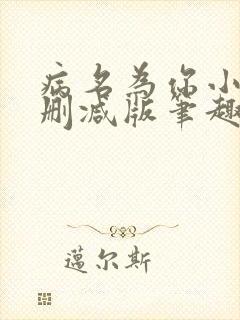 病名为你小
删减版笔趣
邁尔斯